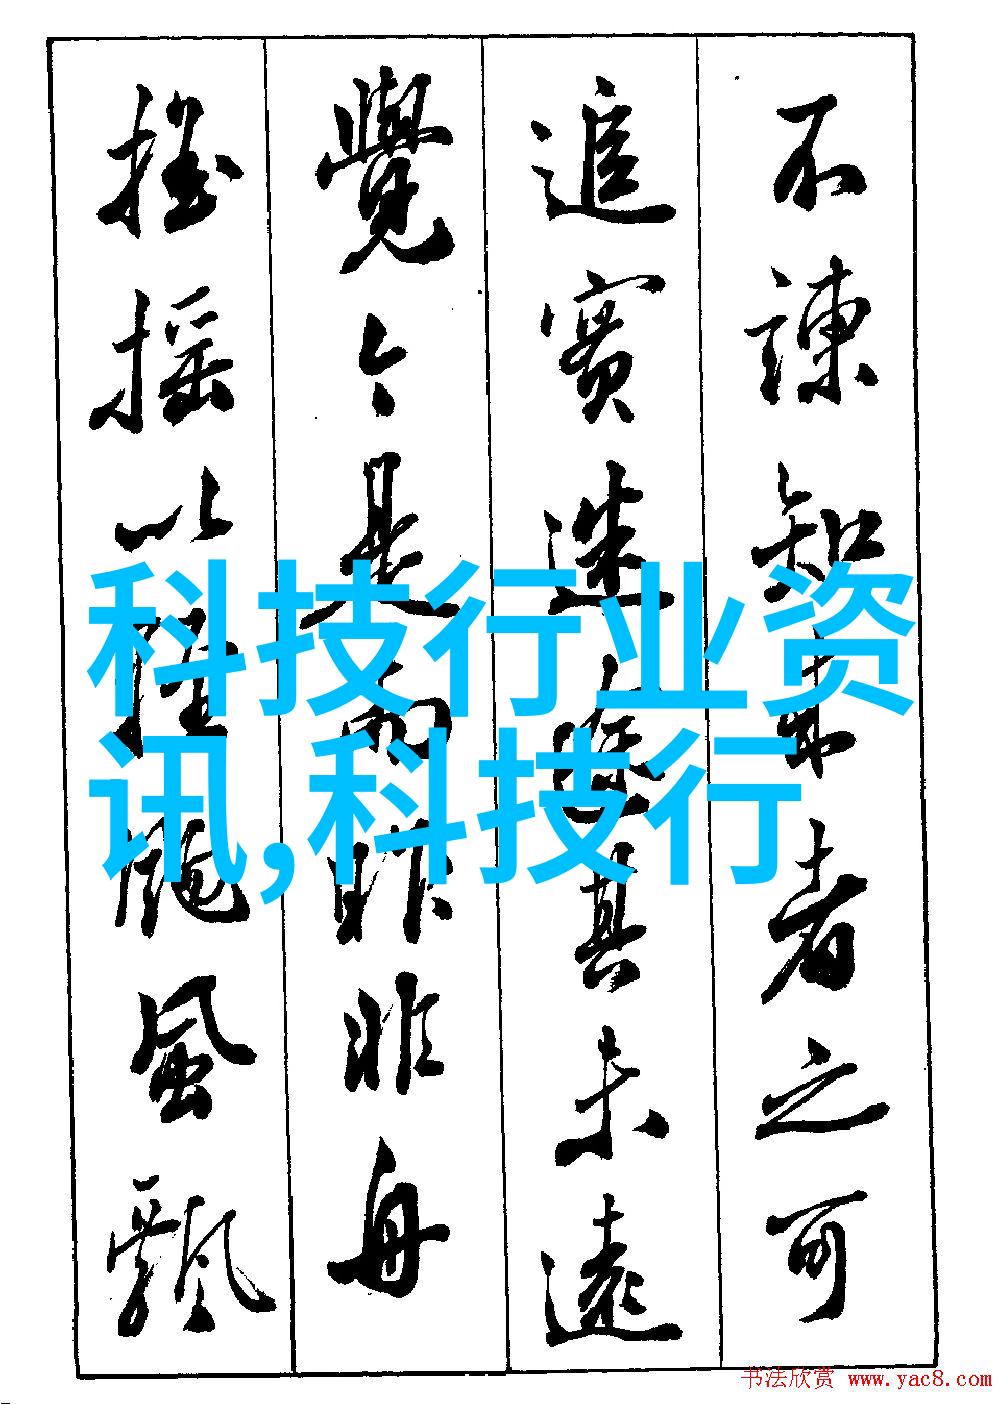 不諫知来者之可
追實迷途其未遠
覺今是而昨非舟
摇摇以輕颺風飄
科技行业资
讯,科技行
书法欣赏 www.yac8.com